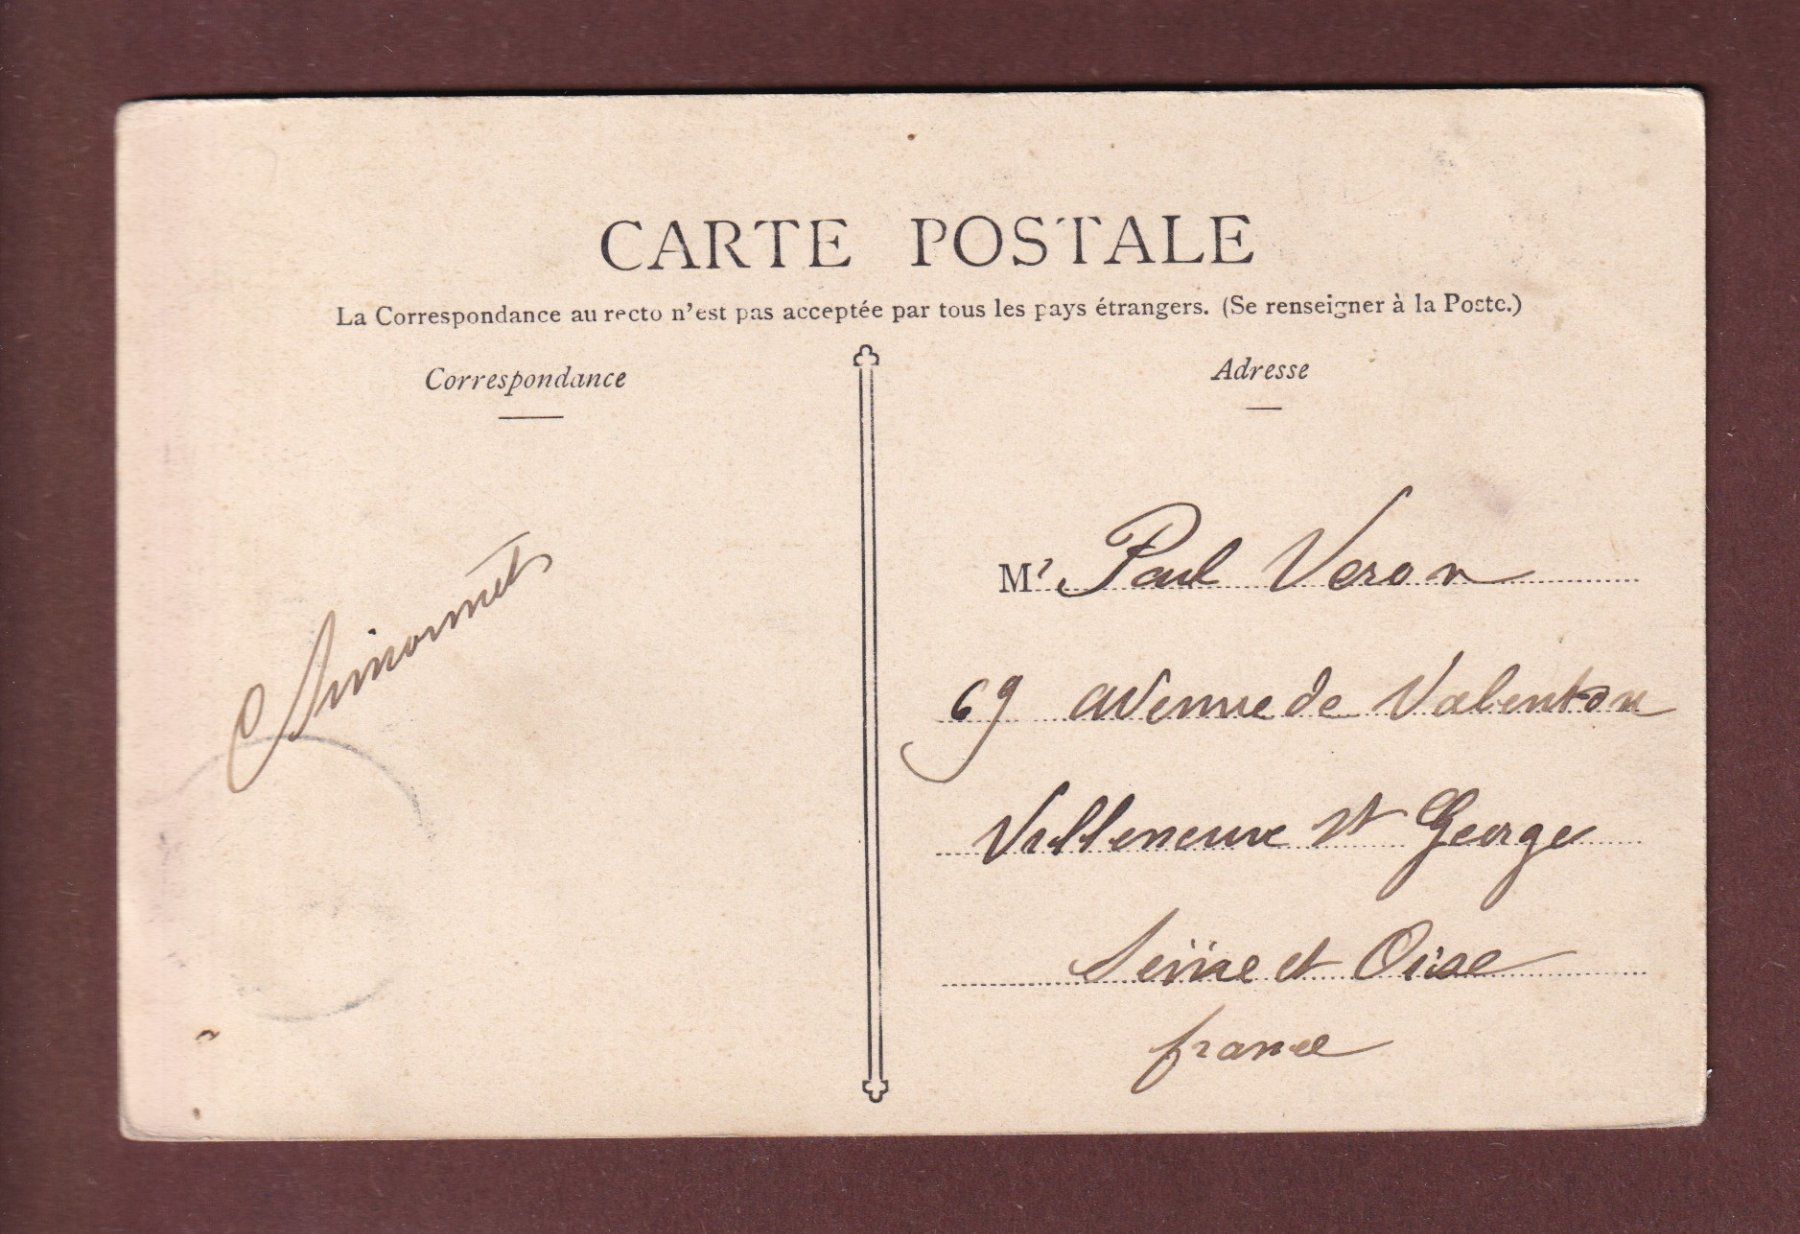 CARTE POSTALE
La Correspondance au recto n'est pas acceptée par tous les pays étrangers. (Se renseigner à la Poste.)
Correspondance
Simonnet
Adresse
Mr Paul Veron
69 avenue de Valenton
Villeneuve St George
Seine et Oise
france